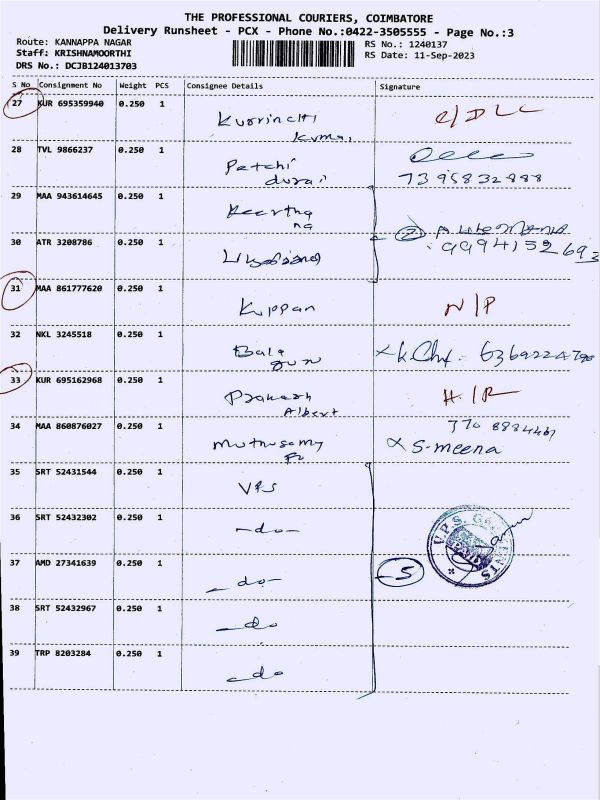 THE PROFESSIONAL COURIERS, COIMBATORE
Delivery Runsheet - PCX - Phone No.:0422-3505555 - Page No.:3
Route: KANNAPPA NAGAR
RS No.: 1240137
Staff: KRISHNAMOORTHI
RS Date: 11-Sep-2023
DRS No.: DCJB124013703
S No Consignment No Weight PCS Consignee Details Signature
27 KUR 695359940 0.250 1
28 TVL 9866237 0.250 1 Petchi
durai
29 MAA 943614645 0.250 1 Keertha
na
30 ATR 3208786 0.250 1
31 MAA 861777620 0.250 1 Kuppan N/P
32 NKL 3245518 0.250 1 Bala
33 KUR 695162968 0.250 1 Prakash
Albert
34 MAA 860876027 0.250 1 Muthusamy
S-meena
35 SRT 52431544 0.250 1 VPS
36 SRT 52432302 0.250 1 -do-
37 AMD 27341639 0.250 1 -do- 5
38 SRT 52432967 0.250 1 -do
39 TRP 8203284 0.250 1 -do